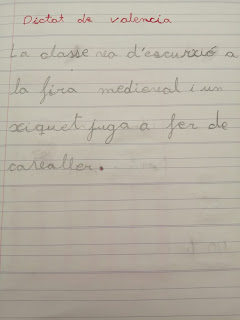 Dictat de valencia
La classe va d'escurxió a
la fira medieval i un
xiquet juga a fer de
cavaller.